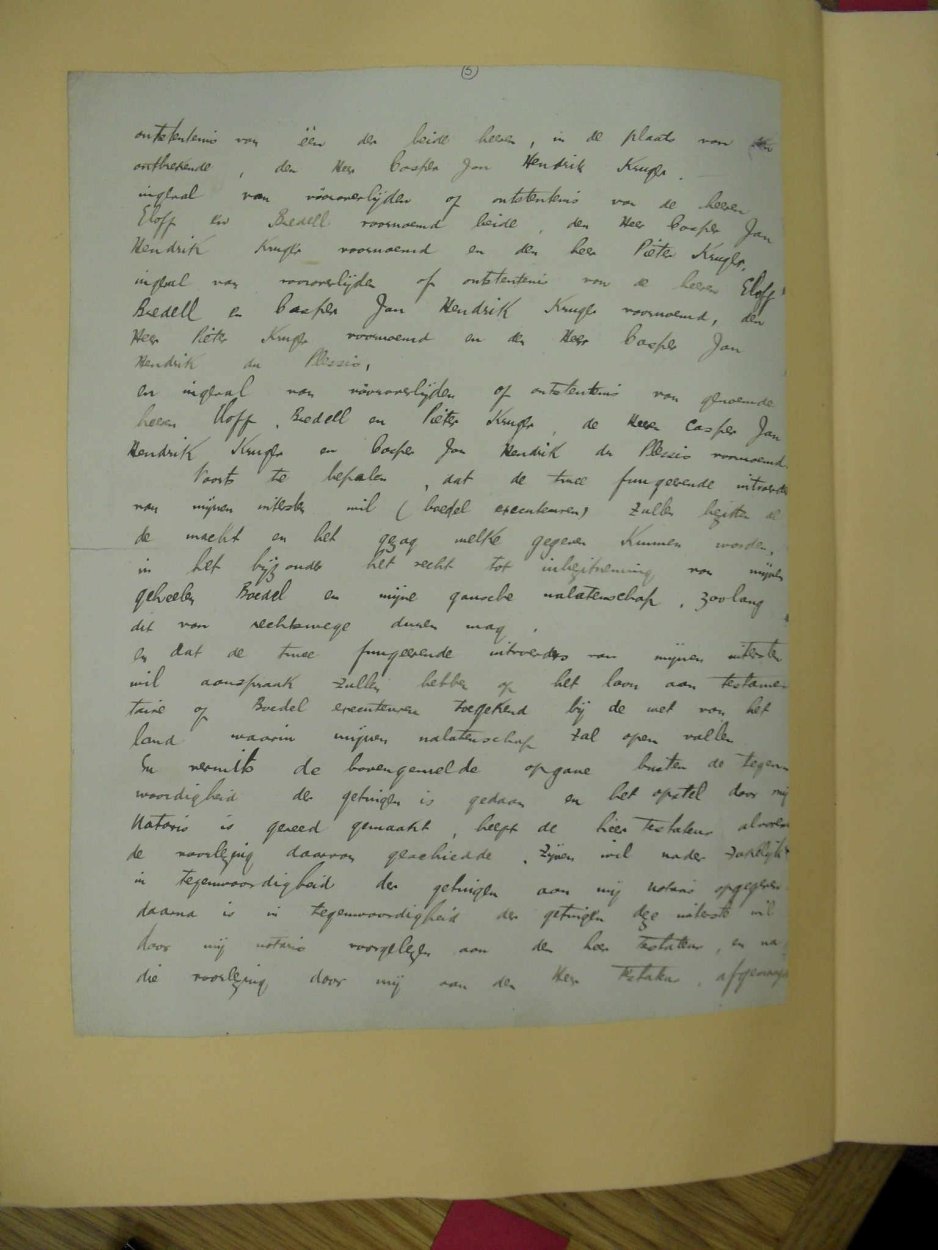 5
ontstentenis van één der beide heeren, in de plaats van den
ontbrekende, den Heer Casper Jan Hendrik Kruger.
ingeval van vóóroverlijden of ontstentenis van de heeren
Eloff en Bredell voornoemd beide, den Heer Casper Jan
Hendrik Kruger voornoemd en den heer Pieter Kruger,
ingeval van vooroverlijden of ontstentenis van de heeren Eloff
Bredell en Casper Jan Hendrik Kruger voornoemd, den
Heer Pieter Kruger voornoemd en den Heer Casper Jan
Hendrik du Plessis,
en ingeval van vóóroverlijden of ontstentenis van genoemde
heeren Eloff, Bredell en Pieter Kruger, de Heeren Casper Jan
Hendrik Kruger en Casper Jan Hendrik du Plessis voornoemd.
Voorts te bepalen, dat de twee fungeerende uitvoerders
van mijnen uitersten wil (boedel executeuren) zullen bezitten al
de macht en het gezag welke gegeven kunnen worden,
in het bijzonder het recht tot inbezitneming van mijnen
geheelen Boedel en mijne gansche nalatenschap, zoolang
dit van rechtswege duren mag.
en dat de twee fungeerende uitvoerders van mijnen uitersten
wil aanspraak zullen hebben op het loon aan testamen
taire of Boedel executeuren toegekend bij de wet van het
land waarin mijnen nalatenschap zal open vallen
En vermits de bovengemelde opgave buiten de tegen-
woordigheid der getuigen is gedaan en het opstel door mij
Notaris is gereed gemaakt, heeft de heer Testateur alvorens
de voorlezing daarvan geschiedde, zijnen wil nader zakelijk
in tegenwoordigheid der getuigen aan mij notaris opgegeven
daarna is in tegenwoordigheid der getuigen deze uiterste wil
door mij notaris voorgelezen aan den heer Testateur, en na
die voorlezing door mij aan den Heer Testateur, afgevraagd